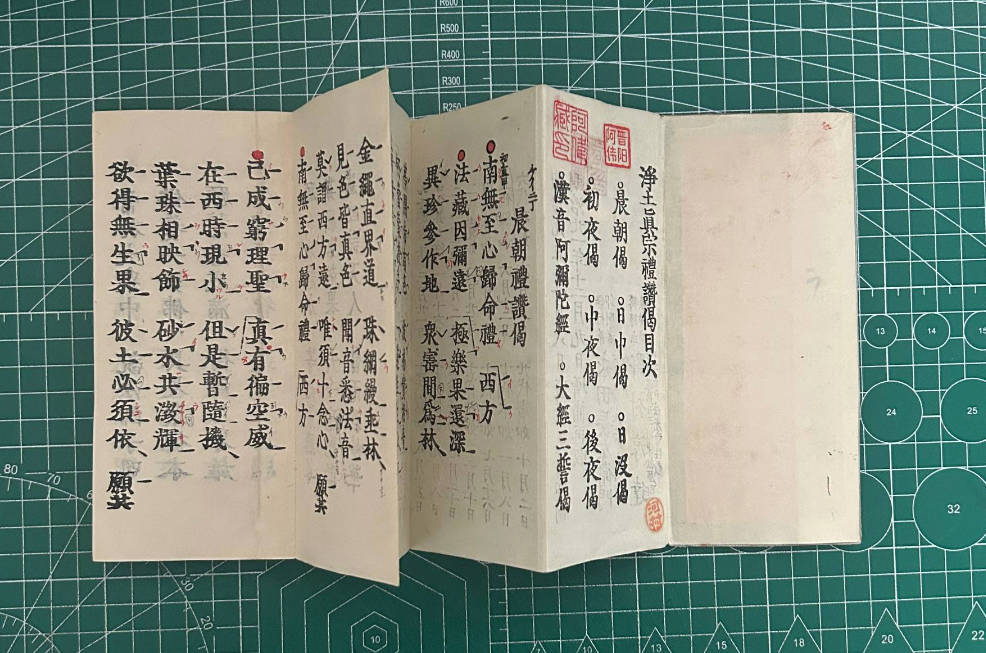 淨土眞宗禮讚偈目次
晨朝偈 日中偈 日沒偈
初夜偈 中夜偈 後夜偈
漢音阿彌陀經 大經三誓偈
晋阳
阿伟
阿偉
藏
河村
晨朝禮讚偈
南無至心歸命禮 西方
法藏因彌遠 極樂果還深
異珍參作地 衆寳間爲林
金繩直界道 珠網縵垂林
見色皆真色 聞音悉法音
莫謂西方遠 唯須十念心 願共
南無至心歸命禮 西方
已成窮理聖 真有徧空威
在西時現小 但是暫隨機
葉珠相映飾 砂水共澄輝
欲得無生果 彼土必須依 願共
R600
R500
R400
R300
R250
13
14
15
24
25
32
80
70
30
20
10
12
15
18
20
22